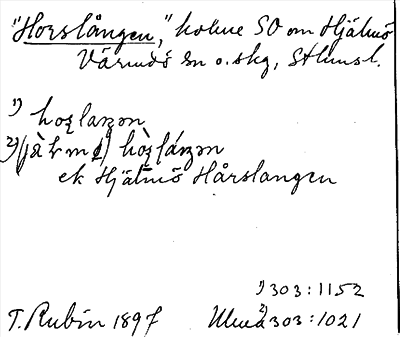 "Horslången," holme SO om Hjälmö
Värmdö sn o. skg, Sthmsl.
1) hoʂlaŋən
2) hòʂláŋən
ek Hjälmö Hårslangen
1) 303:1152
T. Rubin 1897 2) 303:1021